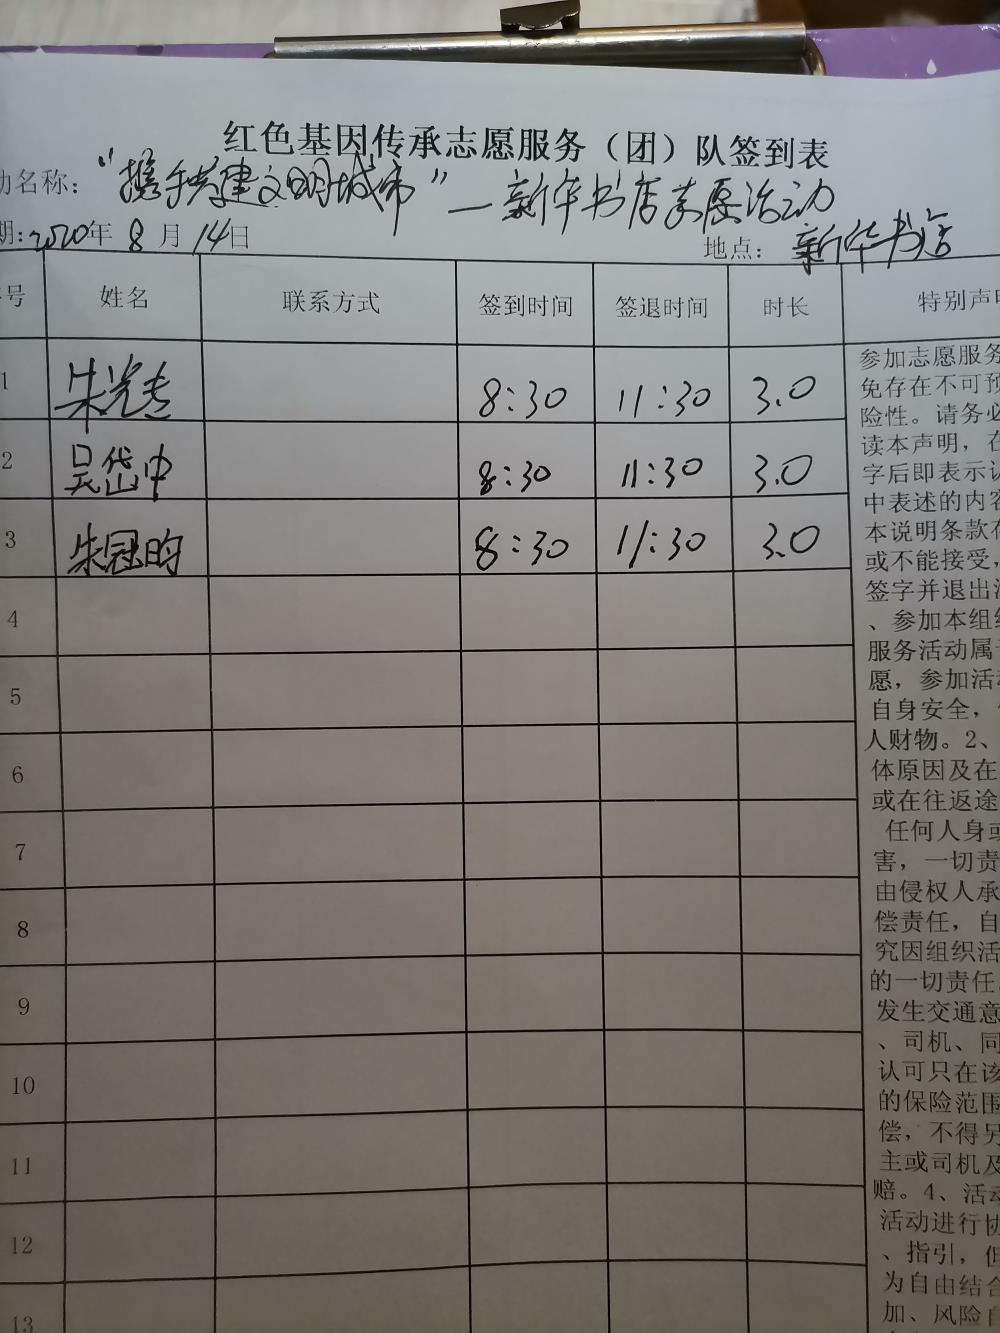 红色基因传承志愿服务（团）队签到表
动名称：“携手共建文明城市”—新华书店志愿活动
期:2020年 8 月 14日 地点: 新华书店
序号 姓名 联系方式 签到时间 签退时间 时长 特别声明
1 朱光专 8:30 11:30 3.0
2 吴岱中 8:30 11:30 3.0
3 朱冠昀 8:30 11:30 3.0
4
5
6
7
8
9
10
11
12
13
参加志愿服务
免存在不可预
险性。请务必
读本声明，在
字后即表示认
中表述的内容
本说明条款存
或不能接受，
签字并退出活
、参加本组织
服务活动属于
愿，参加活动
自身安全，
人财物。2、
体原因及在
或在往返途
任何人身或
害，一切责
由侵权人承
偿责任，自
究因组织活
的一切责任
发生交通意
、司机、同
认可只在该
的保险范围
偿，不得另
主或司机及
赔。4、活动
活动进行协
、指引，但
为自由结合
加、风险自